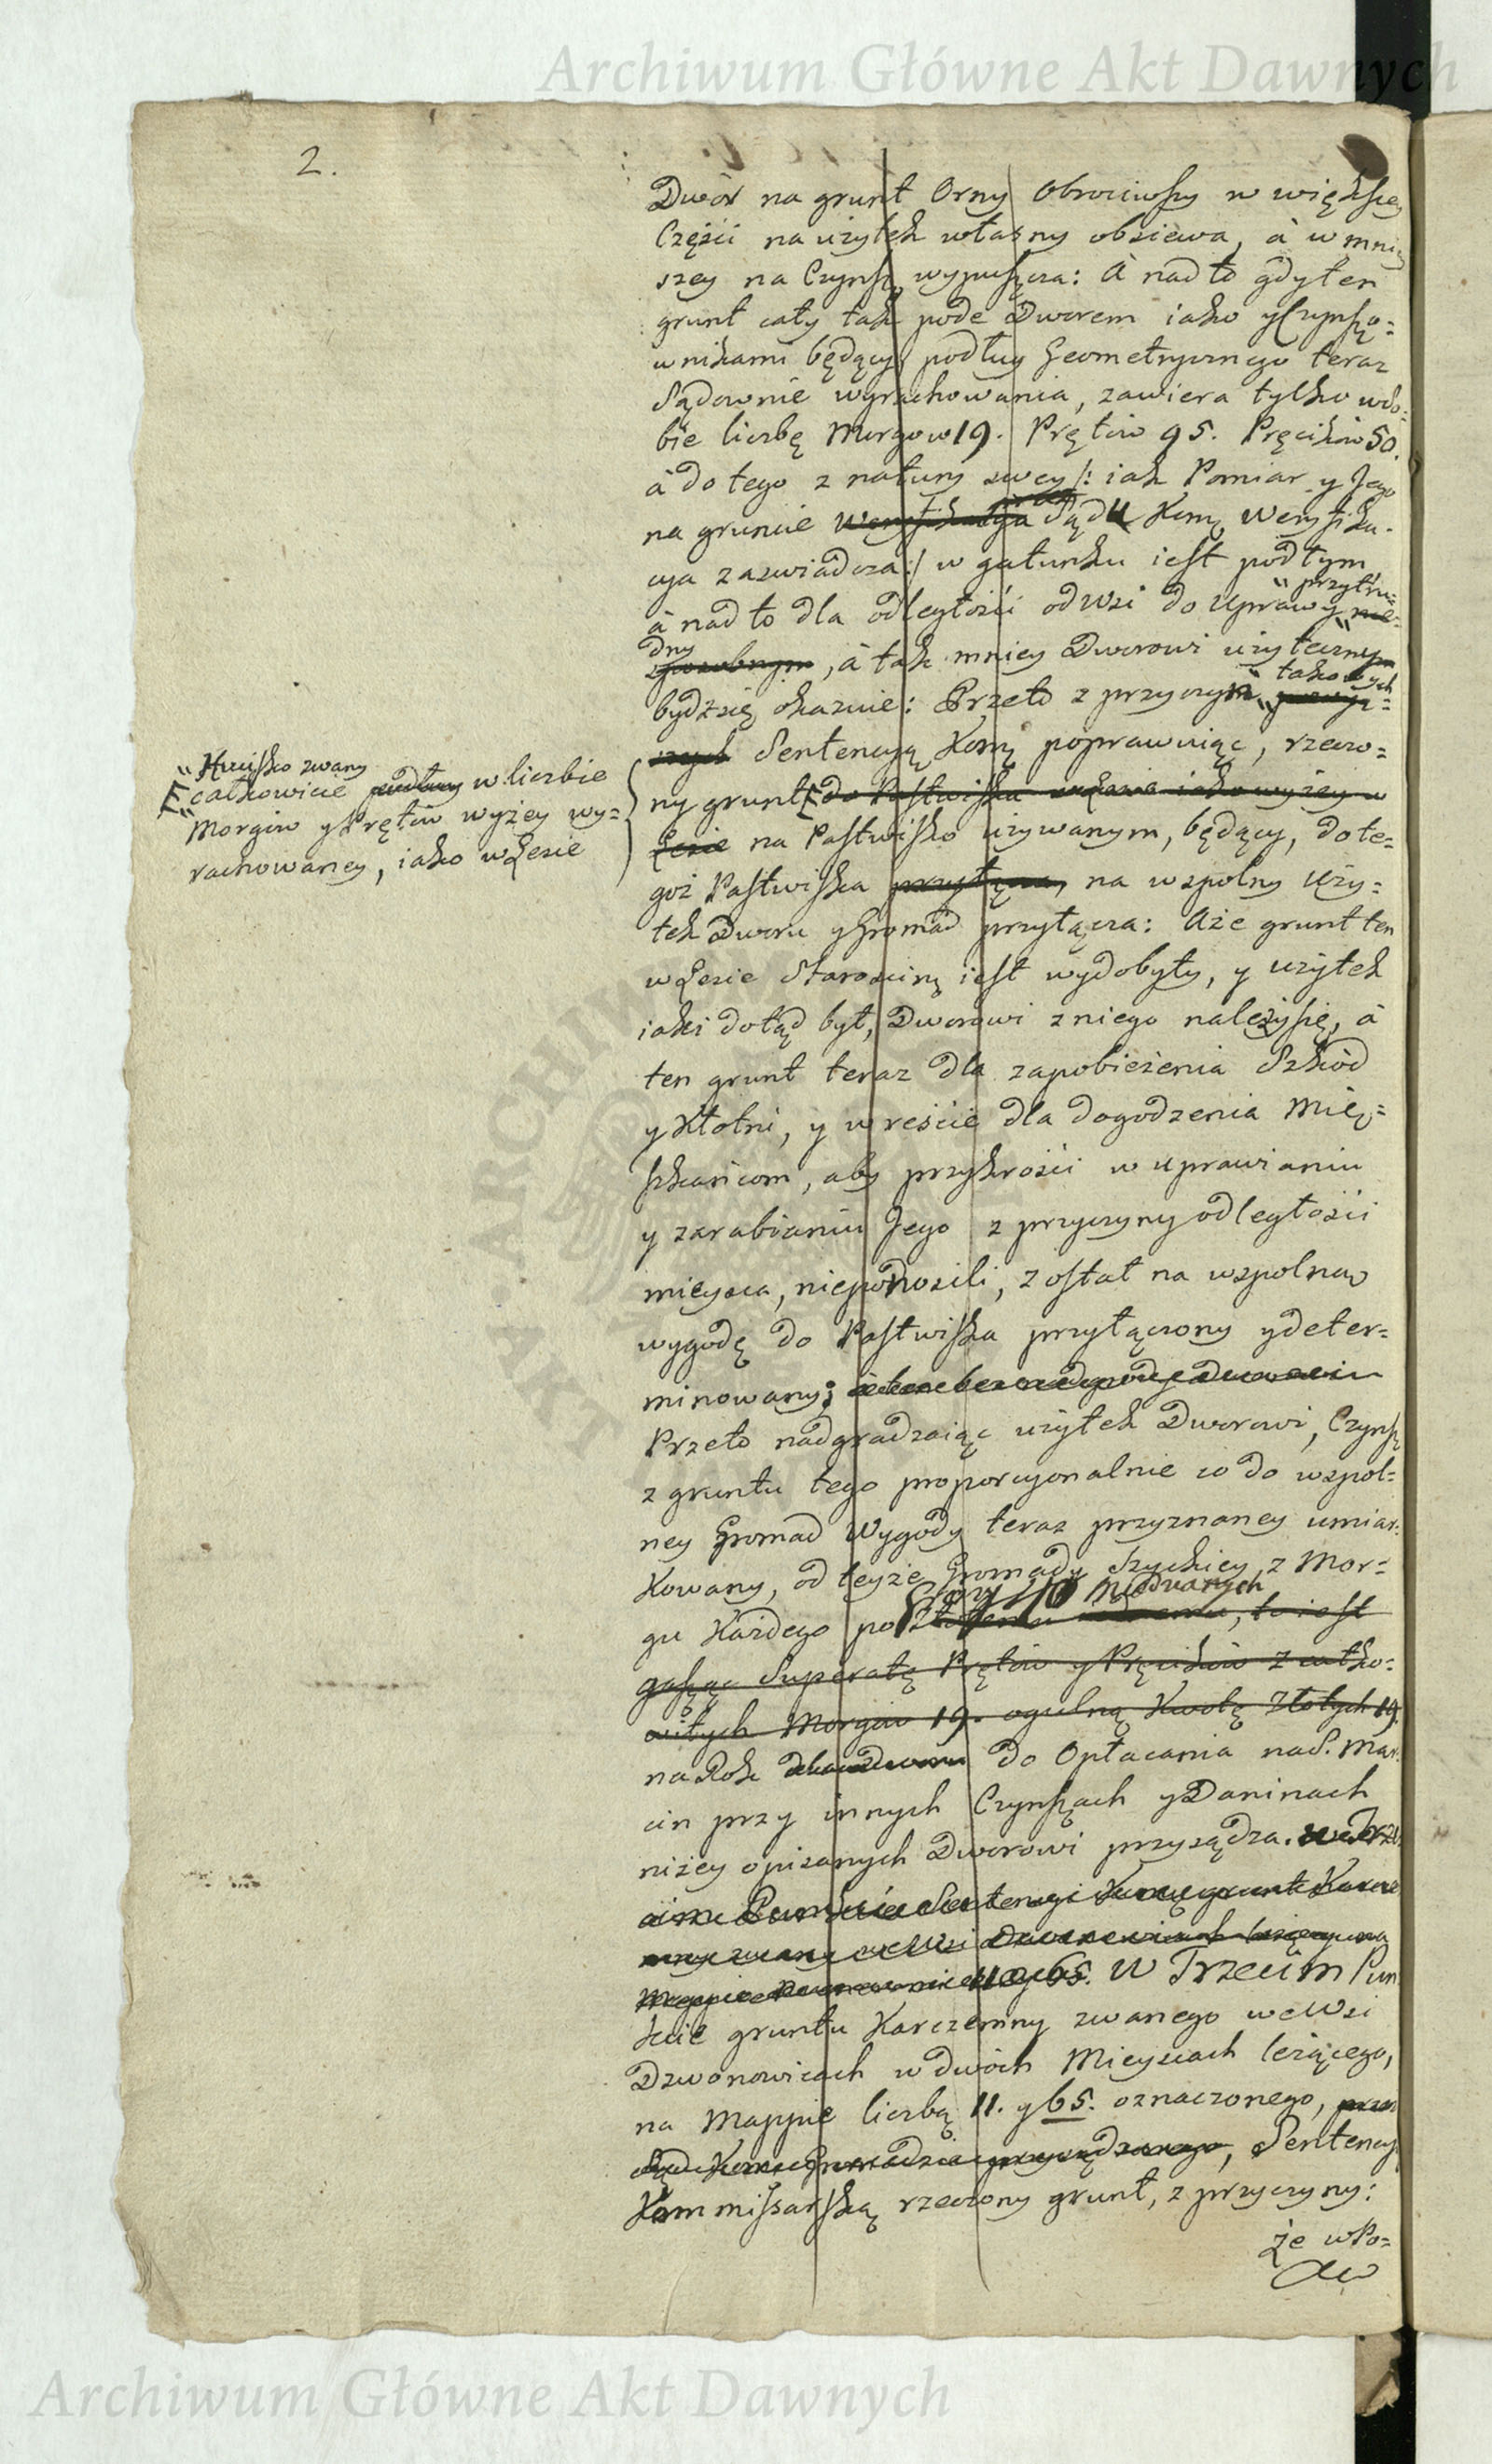 Archiwum Główne Akt Dawnych
2.
Dwór na grunt Orny Obrociwszy w więkſzey
Części na użytek własny obsiewa, à w mniey
szey na Czynſz wypuſzcza: A nad to gdy ten
grunt cały tak pode Dworem iako y Czynſzo=
wnikami będący, podług Geometrycznego teraz
Sądownie wyrachowania, zawiera tylko w so=
bie liczbę Morgow 19. Prętów 95. Pręcików 50.
à do tego z natury swey /: iak Pomiar y Jego
na gruncie Weryfikacyia Sądu Kom̃ Weryfika-
cya zaswiadcza :/ w gatunku ieſt podłym
à nad to dla odległości od Wsi do Uprawy "przytru= nie=
dny
sposobnym, à tak mniey Dworowi użytecznym
bydź się okazuie: Przeto z przyczyn "takowych
Sentencyą Kom̃ poprawuiąc, rzeczo=
ny grunt do Paſtwiſka iako wyżey w
Lesie na Paſtwiſko używanym, będący, do te=
goż Paſtwiſka przyłącza, na wspolny Uży=
tek Dworu y Gromad przyłącza: Aże grunt ten
w Lesie Starościnẜ ieſt wydobyty, y użytek
iaki dotąd był, Dworowi z niego należy się, à
ten grunt teraz dla zapobieżenia Szkód
y Kłotni, y w reście dla dogodzenia Mię=
ſzkańcom, aby przykrości w uprawianiu
y zarabianiu Jego z przyczyny odległości
mieysca, nieponosili, zoſtał na wspolną
wygodę do Paſtwiſka przyłączony y deter=
minowany;
Przeto nadgradzaiąc użytek Dworowi, Czynſz
z gruntu tego proporcyonalnie co do wspol=
ney Gromad Wygody teraz przyznaney umiar=
Kowany, od teyże Gromady Szyckiey z Mor=
gu Każdego po Złotemu to ieſt
Superatę Prętów y Pręcików z całko=
witych Morgów 19. ogulną Kwotę Złotych 19.
na Rok do Opłacania na S. Mar=
cin przy innych Czynſzach y Daninach
niżey opisanych Dworowi przysądza.
Sentencyi Kom̃ grunt
11 y 65. W Trzecim Pun
kcie gruntu Karczemny zwanego we Wsi
Dzwonowicach w dwóch Mieyscach leżącego,
na Mappie liczbą 11. y 65. oznaczonego,
Sentency
Kommiſsarſką rzeczony grunt, z przyczyny:
że w Po=
"Huciſko zwany
całkowicie w liczbie
Morgów y Prętów wyżey wy=
rachowaney, iako w Lesie
Archiwum Główne Akt Dawnych